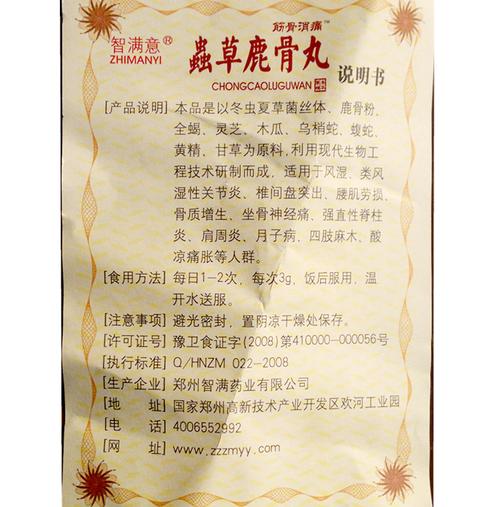 智满意®
ZHIMANYI
筋骨消痛™
蟲草鹿骨丸
CHONGCAOLUGUWAN
说明书
[产品说明] 本品是以冬虫夏草菌丝体、鹿骨粉、
全蝎、灵芝、木瓜、乌梢蛇、蝮蛇、
黄精、甘草为原料,利用现代生物工
程技术研制而成,适用于风湿、类风
湿性关节炎、椎间盘突出、腰肌劳损、
骨质增生、坐骨神经痛、强直性脊柱
炎、肩周炎、月子病、四肢麻木、酸
凉痛胀等人群。
[食用方法] 每日1-2次,每次3g,饭后服用,温
开水送服。
[注意事项] 避光密封,置阴凉干燥处保存。
[许可证号] 豫卫食证字(2008)第410000-000056号
[执行标准] Q/HNZM 022-2008
[生产企业] 郑州智满药业有限公司
[地 址] 国家郑州高新技术产业开发区欢河工业园
[电 话] 4006552992
[网 址] www.zzzmyy.com